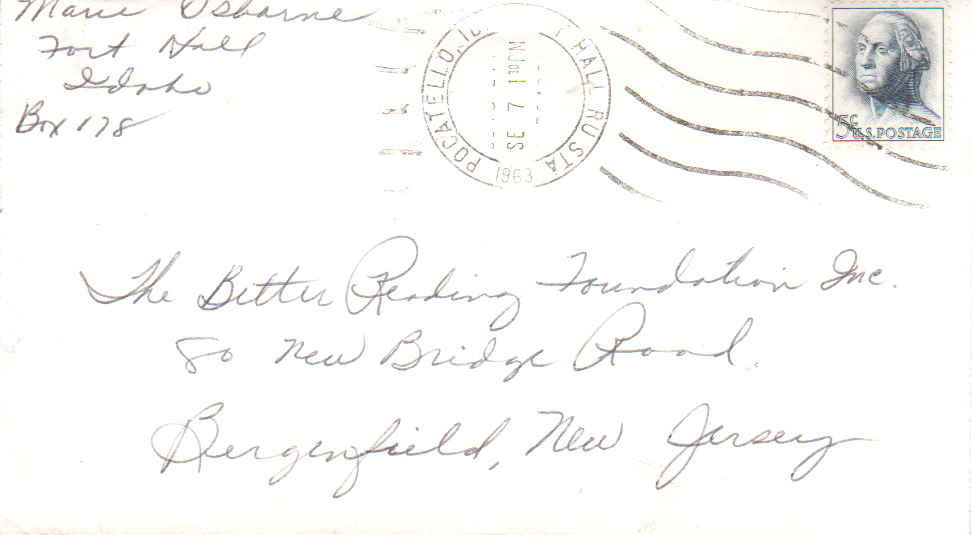 Marie Osborne
Fort Hall
Idaho
Box 178
POCATELLO, ID HALL RU STA
SE 7
1963
5c U.S. POSTAGE
The Better Reading Foundation Inc.
80 New Bridge Road
Bergenfield, New Jersey